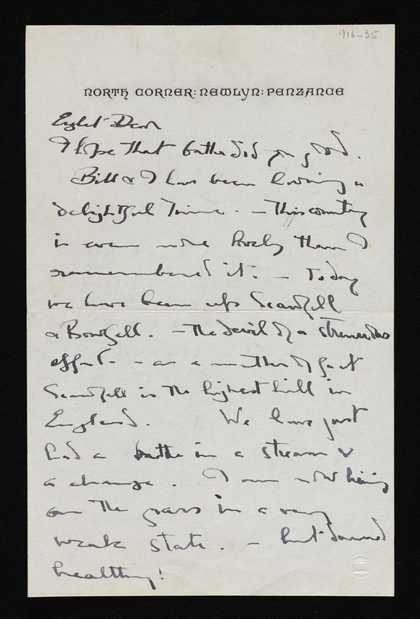 916-35
NORTH CORNER: NEWLYN: PENZANCE
Eglet Dear
I hope that bathe did you good.
Bill & I have been having a
delightful time. – This country
is even more lovely than I
remembered it. – Today
we have been up Scawfell
& Bowfell. – The devil of a strenuous
effort – as a matter of fact
Scawfell is the highest hill in
England. We have just
had a bathe in a stream &
a change. I am now lying
on the grass in a very
weak state. – but damned
healthy!